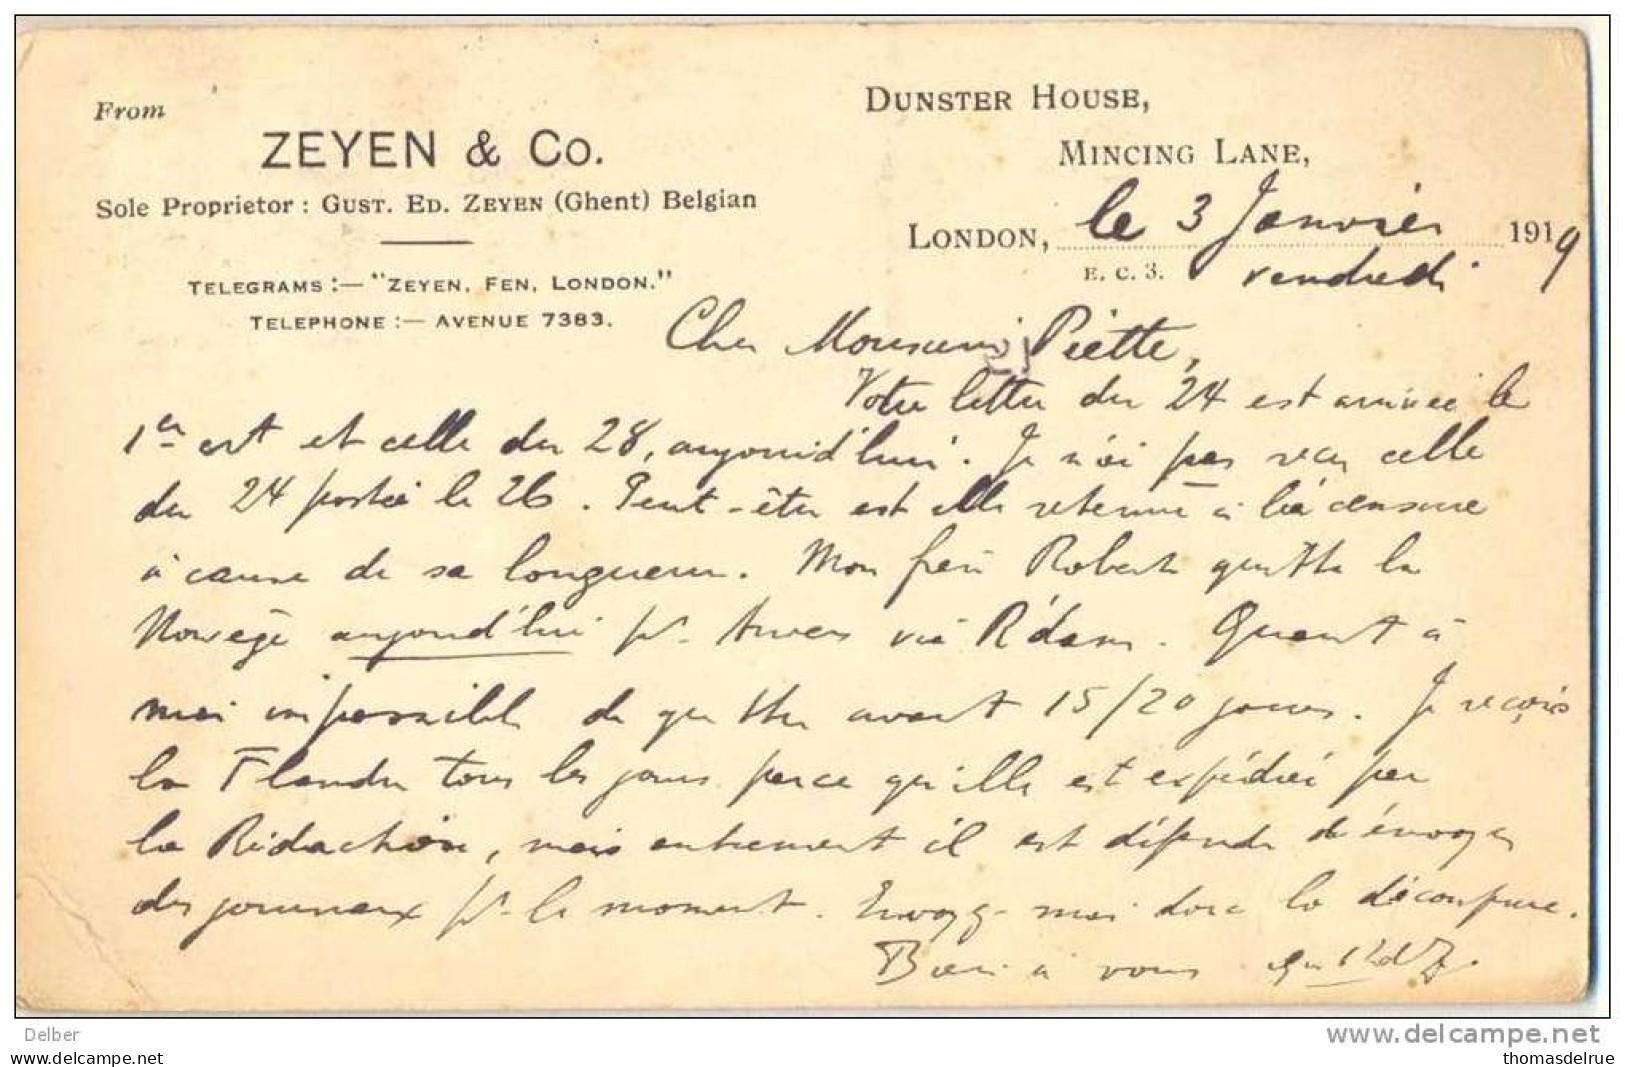 From
ZEYEN & Co.
Sole Proprietor : GUST. ED. ZEYEN (Ghent) Belgian
TELEGRAMS :— "ZEYEN, FEN, LONDON."
TELEPHONE :— AVENUE 7383.
DUNSTER HOUSE,
MINCING LANE,
LONDON, le 3 Janvier 1919
E. C. 3. vendredi
Cher Monsieur Piette,
Votre lettre du 24 est arrivée le
1er et celle du 28, aujourd'hui. Je n'ai pas reçu celle
du 24 postée le 26. Peut-être est elle retenue à la censure
à cause de sa longueur. Mon frère Robert quitte la
Norvège aujourd'hui pr. Anvers via R'dam. Quant à
moi impossible de quitter avant 15/20 jours. Je reçois
la Flandre tous les jours parce qu'elle est expédiée par
la Rédaction, mais autrement il est défendu d'envoyer
des journaux pr. le moment. Envoyez-moi donc la découpure.
Bien à vous
Delber
www.delcampe.net
luckylove.com
thomasdelrue